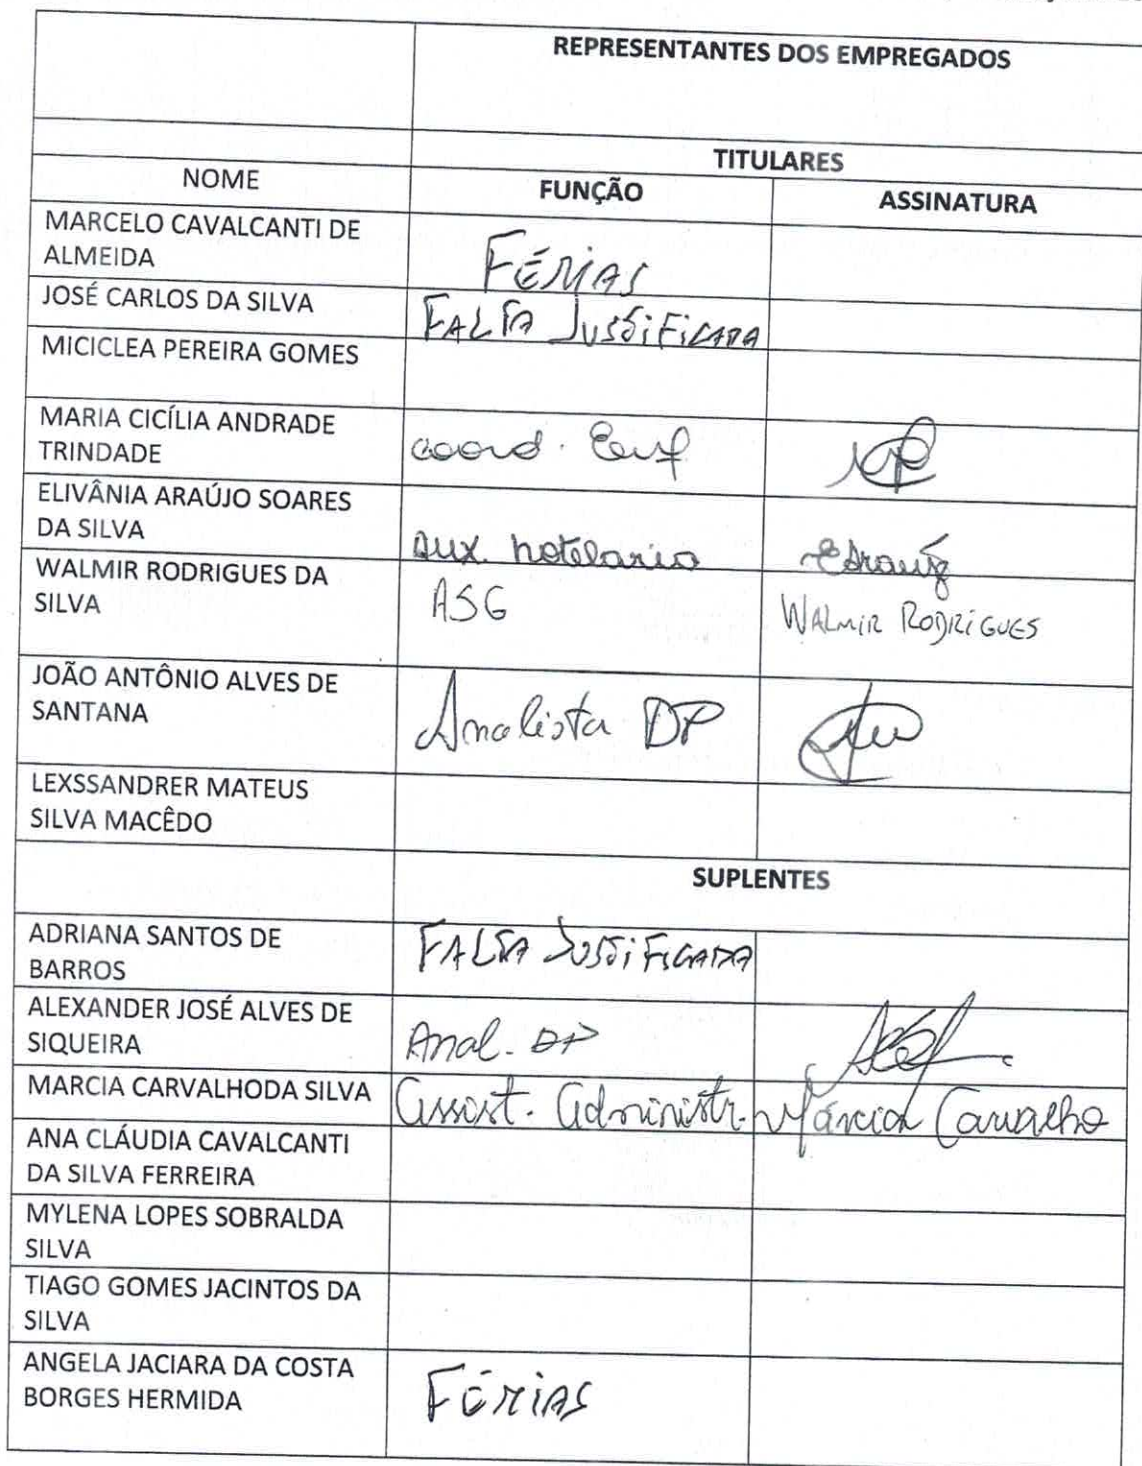 REPRESENTANTES DOS EMPREGADOS
TITULARES
NOME FUNÇÃO ASSINATURA
MARCELO CAVALCANTI DE
ALMEIDA FÉRIAS
JOSÉ CARLOS DA SILVA FALTA JUSTIFICADA
MICICLEA PEREIRA GOMES
MARIA CICÍLIA ANDRADE
TRINDADE coord. Enf
ELIVÂNIA ARAÚJO SOARES
DA SILVA aux. hotelaria
WALMIR RODRIGUES DA
SILVA ASG WALMIR RODRIGUES
JOÃO ANTÔNIO ALVES DE
SANTANA Analista DP
LEXSSANDRER MATEUS
SILVA MACÊDO
SUPLENTES
ADRIANA SANTOS DE
BARROS FALTA JUSTIFICADA
ALEXANDER JOSÉ ALVES DE
SIQUEIRA Anal. DP
MARCIA CARVALHODA SILVA Assist. Administr. Márcia Carvalho
ANA CLÁUDIA CAVALCANTI
DA SILVA FERREIRA
MYLENA LOPES SOBRALDA
SILVA
TIAGO GOMES JACINTOS DA
SILVA
ANGELA JACIARA DA COSTA
BORGES HERMIDA FÉRIAS